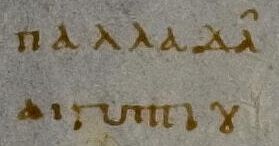 παλλαδᾶ
αιγυπτιȣ